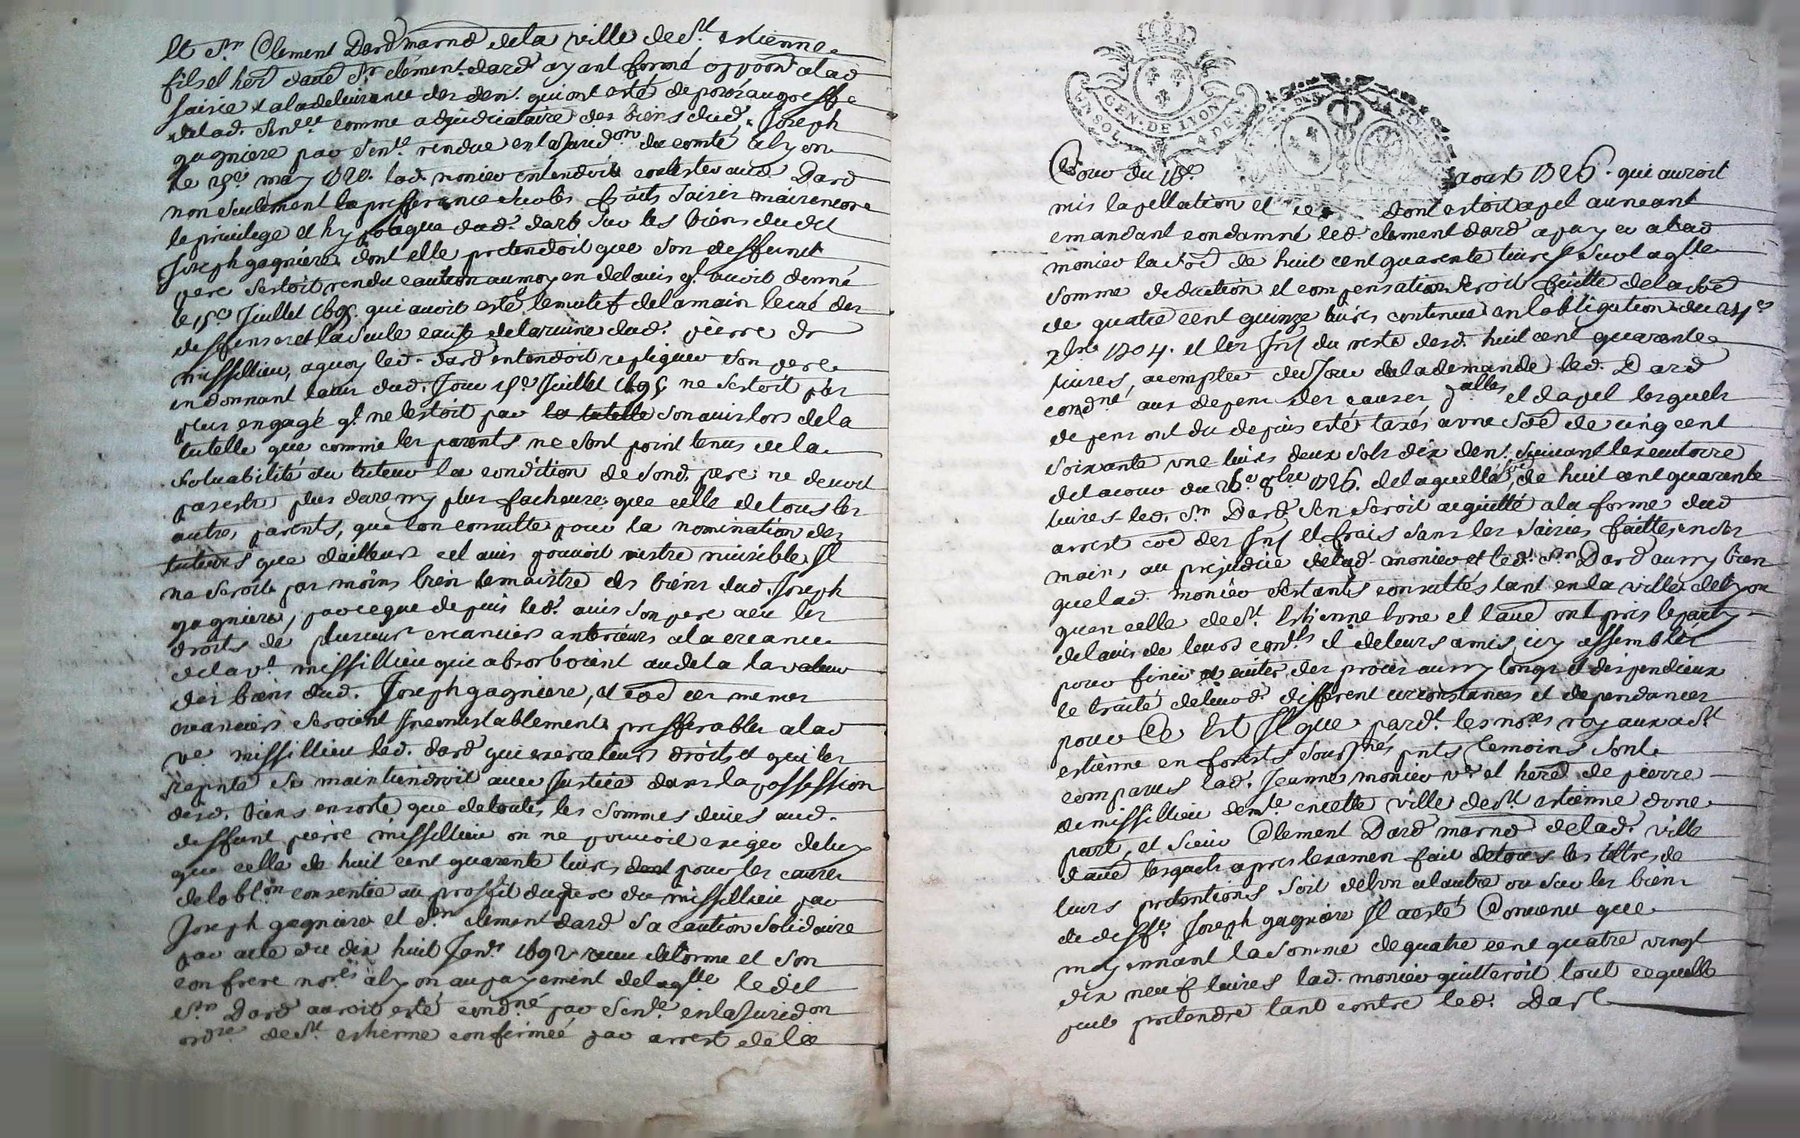 et Sr Clement Dard marnd de la ville de St estienne
fils et herd dautre Sr clement dard ayant formé opposon a lad
saisie et a la delivrance des den. qui ont esté deposés au greffe
de lad. Senée comme adjudicataire des biens dud. Joseph
gagniere par Sence rendue en la Juridon du comté a lyon
le may lad. monier entendoit contester aud Dard
non seulement la prefferance sur les fruits saisis mais encore
le privilege et hypoteque dud. dard sur les biens dudit
Joseph gagniere dont elle pretendoit que son deffunt
pere sestoit rendu caution au moyen de lavis ql avoit donné
le 15e Juillet 1695 qui avoit esté le motif de la main levée des
deffenses et la seule cause de la ruine dud. pierre de
missillieu, a quoy led. dard entendoit repliquer son pere
en donnant lavis dud. Jour 15e Juillet 1695 ne sestoit pas
plus engagé ql ne lestoit par la tutelle son avis lors de la
tutelle que comme les parents ne sont point tenus de la
solvabilité du tuteur la condition de sond. pere ne devoit
paroistre plus dure ny plus facheuse que celle de tous les
autres parents, que lon consulte pour la nomination des
tuteurs que dailleurs cet avis pouvoit nestre nuisible Il
ne seroit pas moins bien le maistre des biens dud. Joseph
gagniere, parce que depuis led. avis son pere a eu les
droits de plusieurs creanciers anterieurs a la creance
de la ve missillieu qui absorboient au dela la valeur
des biens dud. Joseph gagniere, et comme ces memes
creanciers seroient Incontestablement prefferables a lad
ve missillieu led. dard qui exerce leurs droits et qui les
represente se maintiendroit avec Justice dans la possession
desd. biens en sorte que de toutes les sommes deües aud.
deffunt pierre missillieu on ne pouvoit exiger de luy
que celle de huit cent quarente livres dont pour les causes
de loblon consentie au proffit du pere du missillieu par
Joseph gagniere et Sr clement dard sa caution solidaire
par acte du dix huit Janr 1692 receu delorme et son
confrere nores a lyon au payement de laqlle ledit
Sr Dard auroit esté condné par Sence en la Juridon
ordre de St estienne confirmée par arrest de la
GEN. DE LYON
Cour du aoust 1726. qui auroit
mis lapellation et ce dont estoit apel au neant
emandant condamné led. clement dard a payer a lad
monier la Some de huit cent quarente livres Sur laqlle
somme deduction et compensation seroit faitte de la Some
de quatre cent quinze livres contenue en lobligation du 24e
xbre 1704. et les Intt du reste desd. huit cent quarente
livres, a compter du Jour de la demande led. Dard
condné aux depens des causes et dapel lesquels
depens ont du depuis esté taxés a une Some de cinq cent
soixante une livres deux sols dix den. suivant lexecutoire
de la cour du 26e 8bre 1726. de laquelle Some de huit cent quarente
livres led. Sr Dard sen seroit acquitté a la forme dud
arrest comme des Intt et frais dans les saisies faittes en ses
mains au prejudice de lad monier et led. Sr Dard aussy bien
que lad. monier sestants consultés tant en la ville de lyon
quen celle de St Estienne lune et lautre ont pris le party
de lavis de leurs conls et de leurs amis icy assemblés
pour finir et eviter des proces aussy longs et dispendieux
le traité de leurd. different circonstances et dependances
pour Ce Est Il que pardt les nores royaux a St
estienne en forests soussignés pnts temoins sont
comparus lad. Jeanne monier ve et hered de pierre
de missillieu demte en cette ville de St estienne dune
part, et sieur Clement Dard marnd de lad. ville
dautre lesquels apres lexamen fait de tous les tittres de
leurs pretentions soit de lun a lautre ou sur les biens
de defft. Joseph gagniere Il a esté Convenu que
moyennant la somme de quatre cent quatre vingt
dix neuf livres lad. monier quitteroit tout ce quelle
peut pretendre tant contre led. Dard